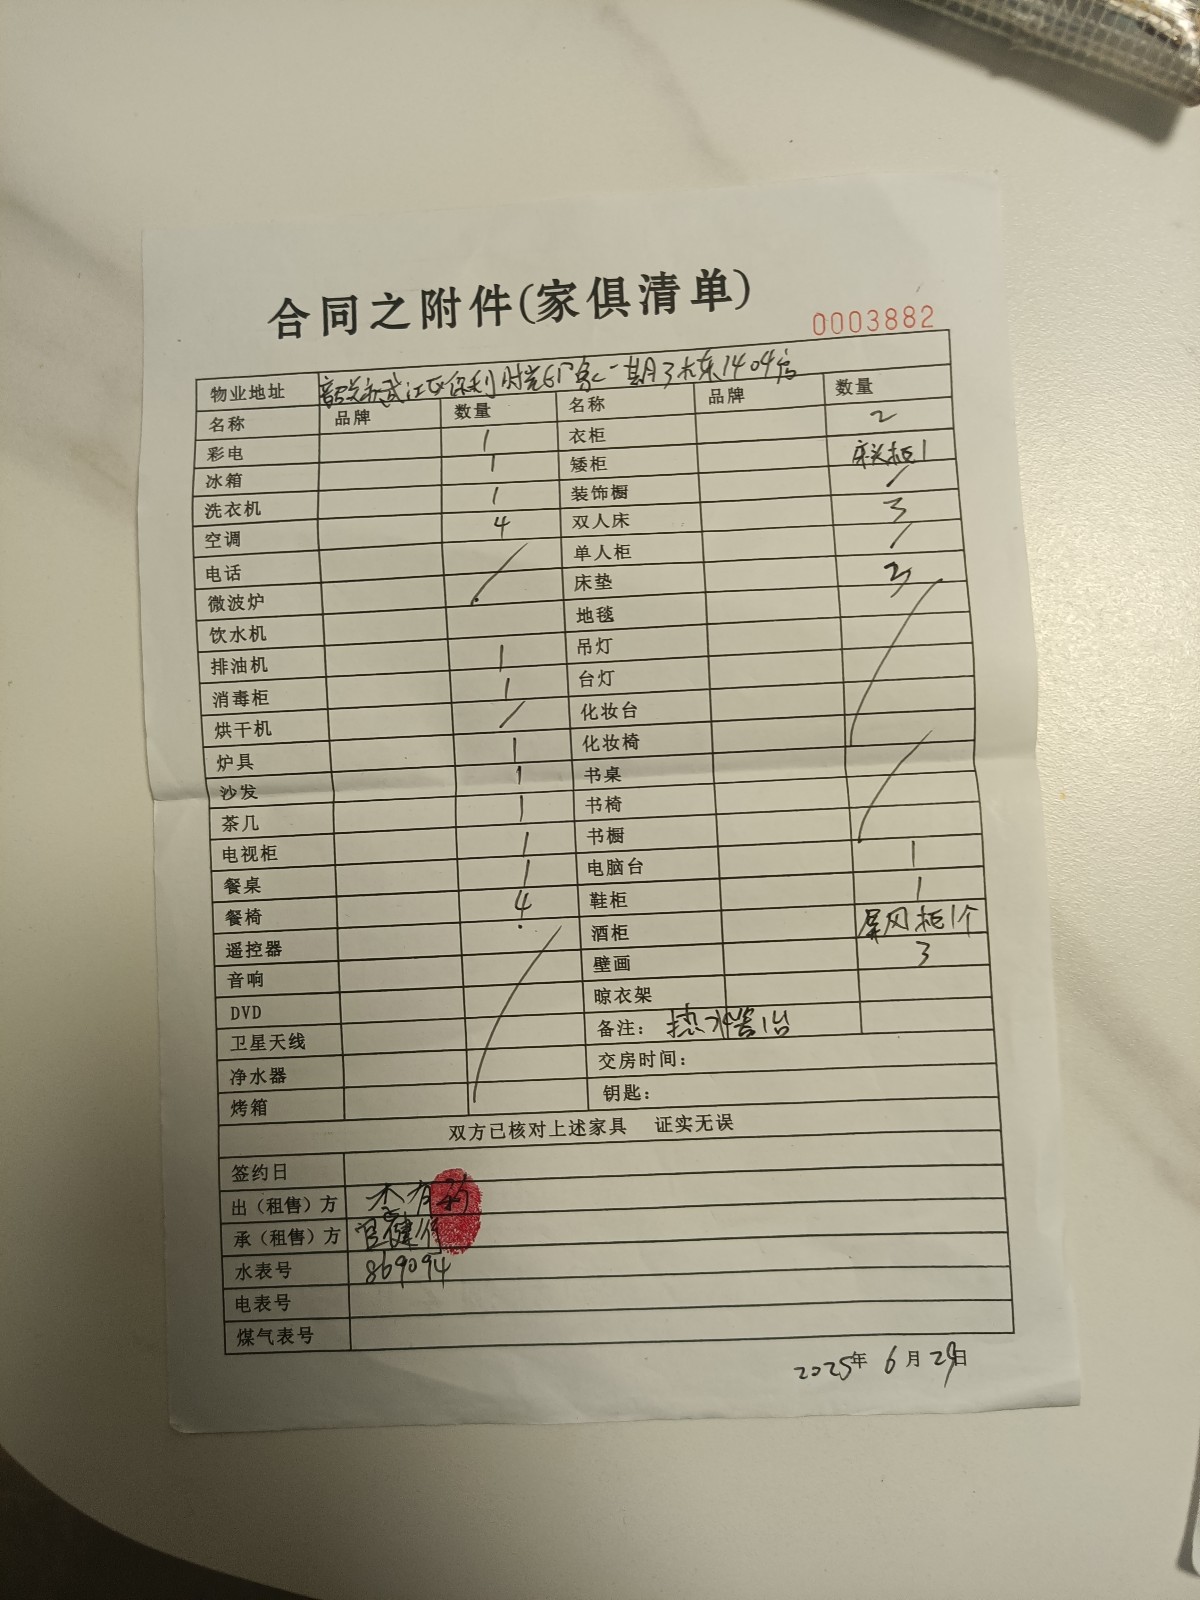 合同之附件(家俱清单)
0003882
物业地址 韶关市武江区保利时光 一期 1404房
名称 品牌 数量 名称 品牌 数量
彩电 1 衣柜 2
冰箱 1 矮柜 床头柜1
洗衣机 1 装饰橱 /
空调 4 双人床 3
电话 单人柜 /
微波炉 床垫 3
饮水机 地毯
排油机 1 吊灯
消毒柜 1 台灯
烘干机 / 化妆台
炉具 1 化妆椅
沙发 1 书桌
茶几 1 书椅
电视柜 1 书橱
餐桌 1 电脑台 1
餐椅 4 鞋柜 1
遥控器 酒柜 屏风柜1个
音响 壁画 3
DVD 晾衣架
卫星天线 备注: 热水 1台
净水器 交房时间:
烤箱 钥匙:
双方已核对上述家具 证实无误
签约日
出(租售)方
承(租售)方
水表号 869094
电表号
煤气表号
2025年 6月29日